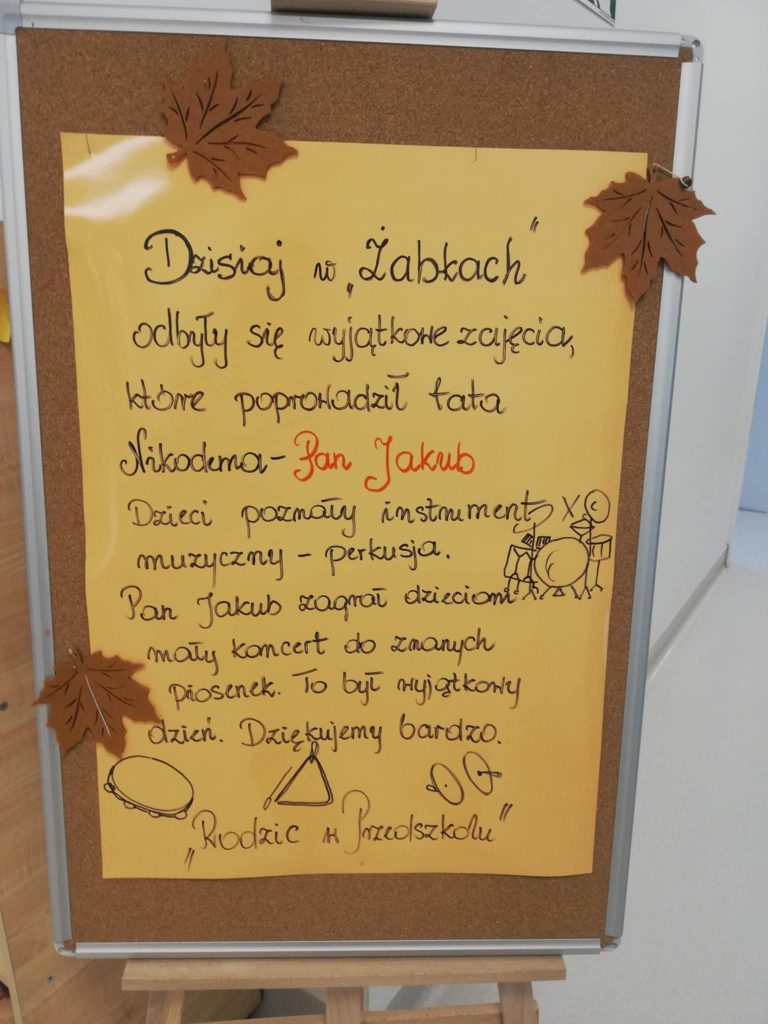 Dzisiaj w „Żabkach"
odbyły się wyjątkowe zajęcia,
które poprowadził tata
Nikodema - Pan Jakub
Dzieci poznały instrument
muzyczny - perkusja.
Pan Jakub zagrał dzieciom
mały koncert do znanych
piosenek. To był wyjątkowy
dzień. Dziękujemy bardzo.
„Rodzic w Przedszkolu"